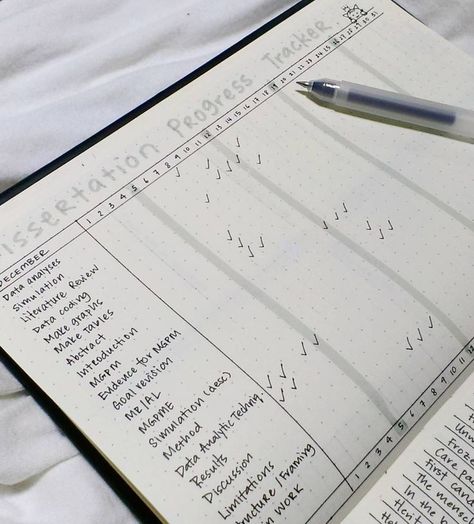 Dissertation Progress Tracker
DECEMBER 1 2 3 4 5 6 7 8 9 10 11 12 13 14 15 16 17 18 19 20 21 22 23 24 25 26 27 28 29 30 31
Data analyses
Simulation
Literature Review
Data coding
Make graphs
Make Tables
Abstract
Introduction
MGPM
Evidence for MGPM
Goal revision
ME/AL
MGPME
Simulation (desc)
Method
Data Analytic Techniq.
Results
Discussion
Limitations
Structure/Framing
in work
1 2 3 4 5 6 7 8 9 10 11 12
Froze
Care
first cand
The mens
In the